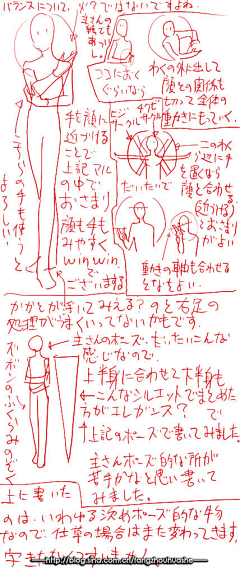 バランスについて。火?ではないですよね。
主さんの
絵でも
あった
し。
ココにおく
ぐらいなら
わくの外に出して
顔との関係も
切って全体の
動きにもっていく。
こっちの手も使うと
よろしい
手を顔に
近づける
ことで
上記マル
の中で
おさまり
顔も手も
みやすく
winwin
で
ございまする
ヒジ
サークル
ワキ
サークル
だいたいで
このわく
の辺に手
を置くなら
顔と合わせ
る
(近づける)
とおさまり
がよい
動きの軸も合わせる
となおよい。
かかとがういてみえる?のと右足の
処理がうまくいってないかもです。
ズボンのふくらみのぞく
主さんのポーズ、もったいこんな
感じなので、
上半身に合わせて下半身も
←こんなシルエットでまとめた
ほうがエレガンス?で
↑上記のポーズで書いてみました。
主さんポーズ的な所が
苦手かなと思い書いて
みました。
上に書いた
のは、いわゆる決めポーズ的な物
なので、仕草の場合はまた変わってきます。
http://blog.sina.com.cn/tangzhouhuashe